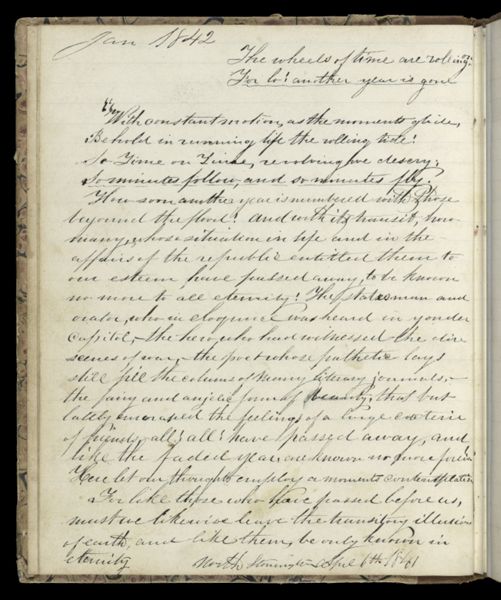 Jan 1842
The wheels of time are rolling on.
For lo! another year is gone
"With constant motion, as the moments glide,
Behold in running life the rolling tide!
So Time on Time, revolving we descry;
So minutes follow, and so minutes fly."
How soon another year is numbered with those
beyound the flood! and with its transit, how
many, whose situation in life and in the
affairs of the republic entitled them to
our esteem have passed away, to be known
no more to all eternity! The statesman and
orator, who in eloquence was heard in yonder
Capitol,- the hero, who had witnessed the dire
scenes of war,- the poet whose pathetic lays
still fill the colums of many literary journals,-
the fairy and angelic form of beauty, that but
lately enwraped the feelings of a large
of friends,- all! all! have passed away, and
like the faded year, are known no more forever
Here let our thoughts employ a moments contemplation
For like those who have passed before us,
must we likewise leave the transitory illusions
of earth, and like them, be only known in
eternity.
North Stonington April 6th 1841